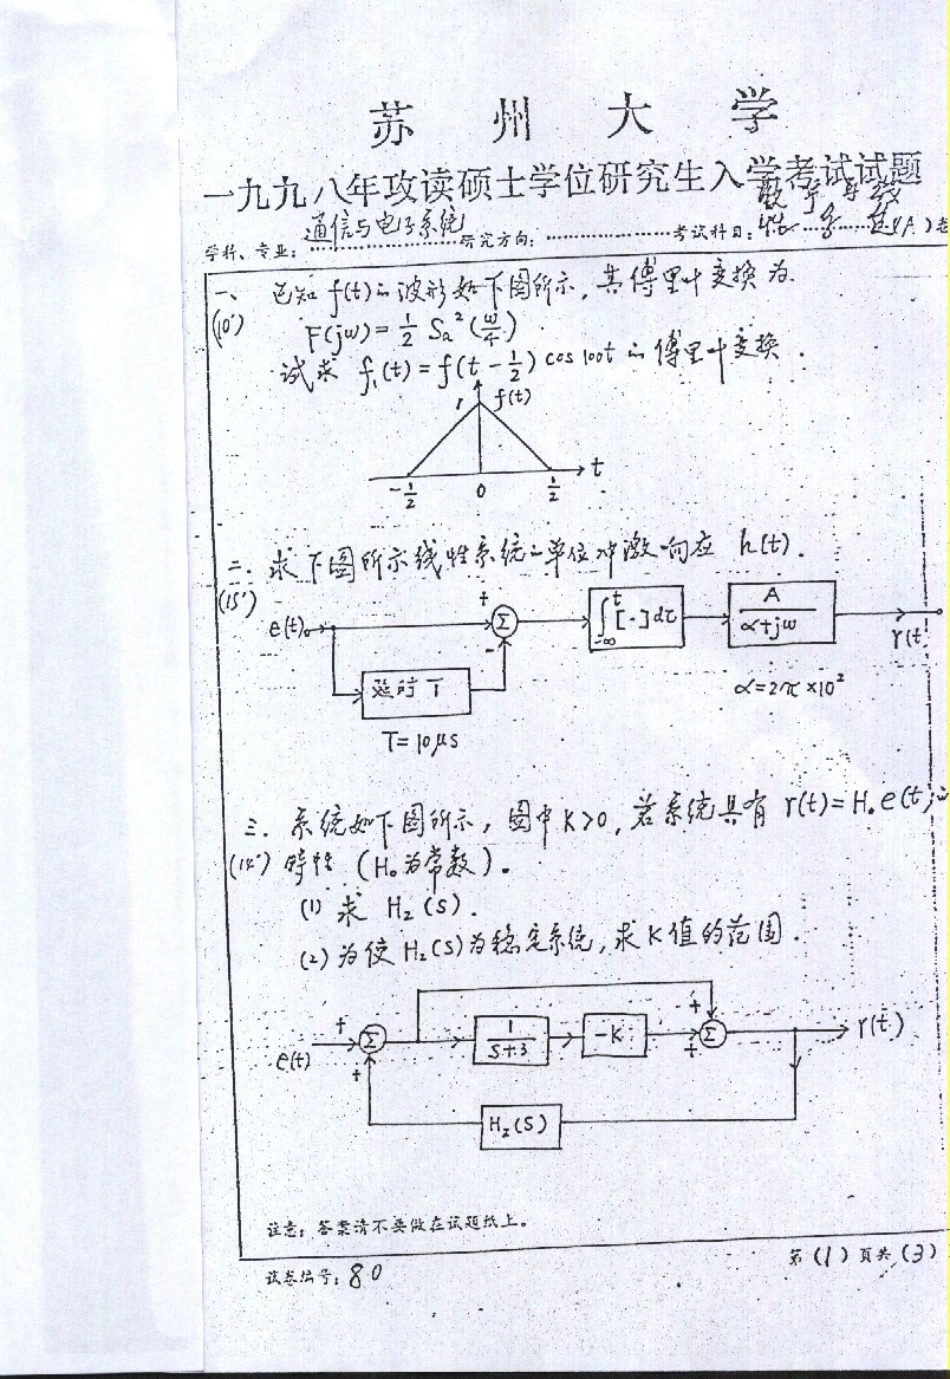 苏州大学
一九九八年攻读硕士学位研究生入学考试试题
学科、专业：通信与电子系统 研究方向： 考试科目： (A)卷
一、已知 f(t)的波形如下图所示，其傅里叶变换为
(10') F(jω)=1/2 Sa²(ω/4)
试求 f₁(t)=f(t-1/2)cos100t的傅里叶变换.
1 f(t)
t
-1/2 0 1/2
二. 求下图所示线性系统的单位冲激响应 h(t).
(15')
e(t) + Σ - ∫_{-∞}^{t}[·]dτ A/(α+jω) r(t
延时 T
α=2π×10²
T=10μs
三. 系统如下图所示, 图中K>0, 若系统具有 r(t)=H₀e(t)的
(14') 特性 (H₀为常数).
(1) 求 H₂(s).
(2) 为使 H₂(s)为稳定系统, 求K值的范围.
e(t) + Σ + 1/(s+3) -K + + Σ r(t)
H₂(s)
注意：答案请不要做在试题纸上。
第(1)页共(3)
试卷编号：80